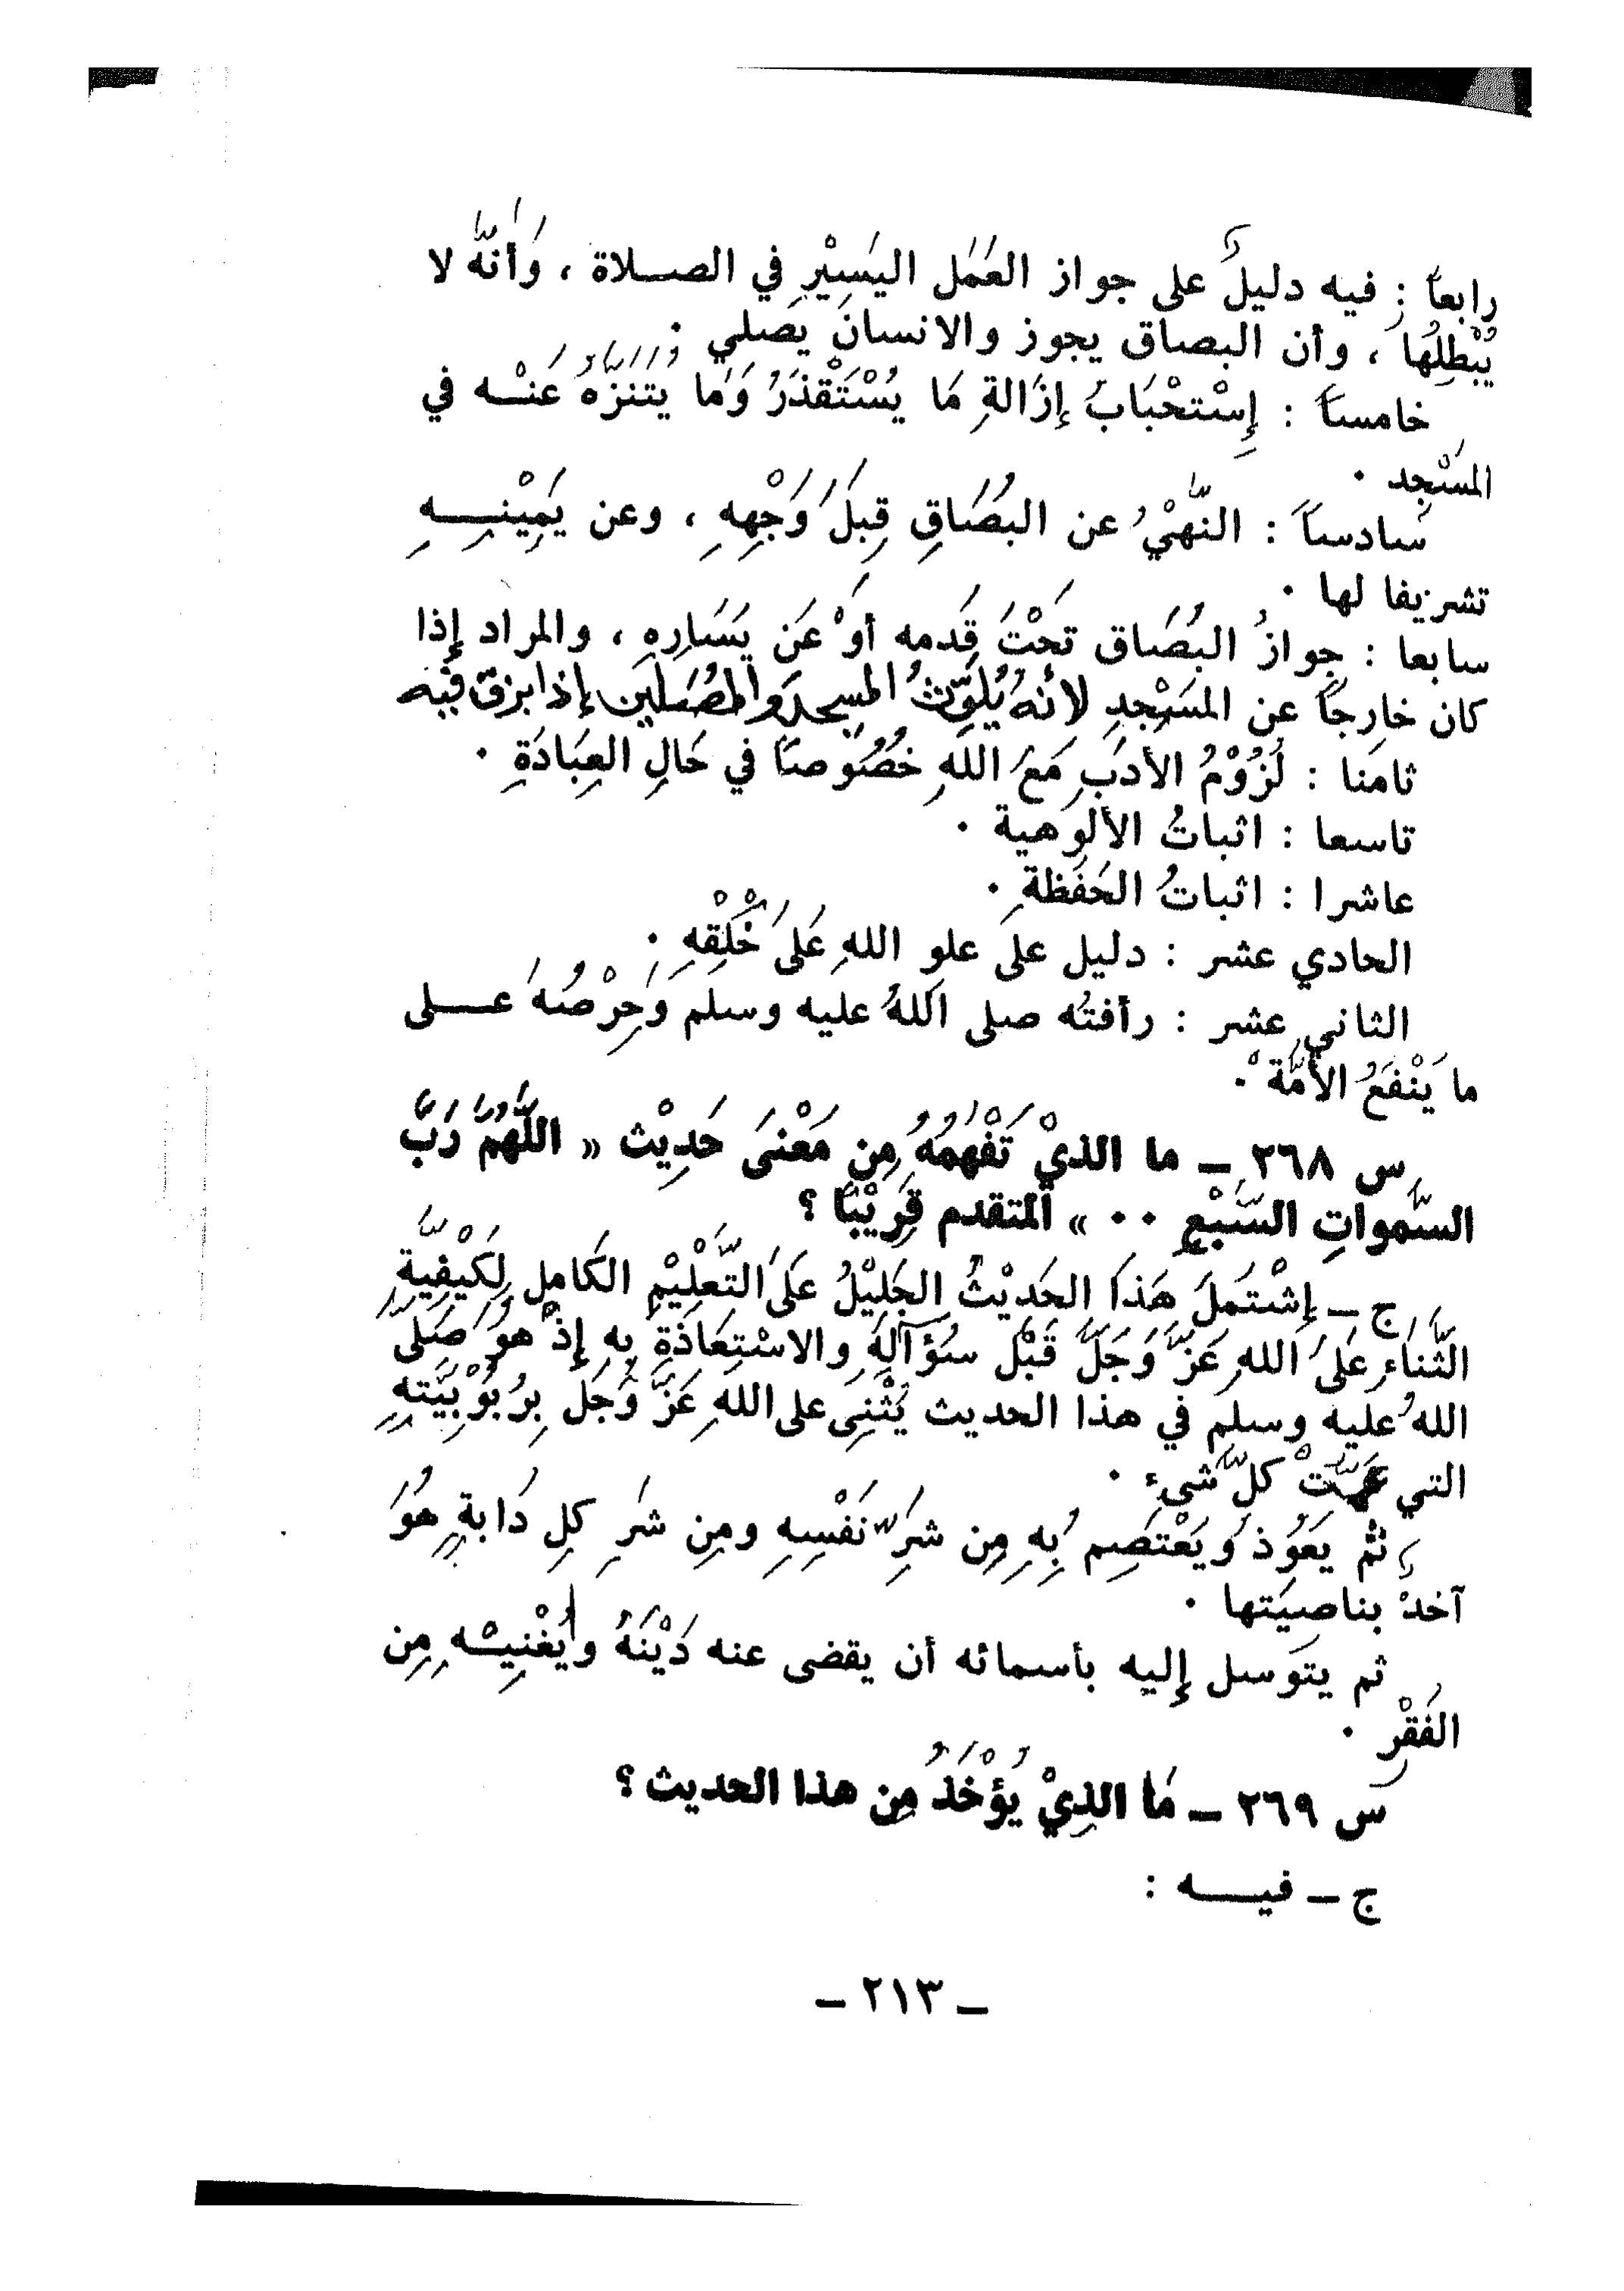 رابعاً : فيه دليلٌ على جواز العَمَلِ اليَسِيْرِ في الصلاة ، وَأنَّهُ لا
يُبْطِلُها ، وأن البصاق يجوز والانسانُ يُصلي .
خامساً : إِسْتحْبَابُ إِزَالةِ مَا يُسْتَقْذَرُ وَمَا يُتَنَزَّهُ عَنْه في
المسْجِد .
سادساً : النَّهْيُ عن البُصَاقِ قِبَلَ وَجْهِهِ ، وعن يَمِيْنِهِ
تشريفا لها .
سابعا : جوازُ البُصَاق تحْتَ قَدمه أوْ عَن يَسَارِهِ ، والمراد إِذا
كان خارجاً عن المسْجِدِ لأنه يُلَوِّثُ المسجدَ والمصَلين إذا بزق فيه
ثامنا : لُزُوْمُ الأدَبِ مَعَ اللهِ خُصُوصاً في حَالِ العِبَادَةِ .
تاسعا : اثباتُ الألوهية .
عاشرا : اثباتُ الحَفَظةِ .
الحادي عشر : دليل على علوِ اللهِ عَلَى خَلْقِهِ .
الثاني عشر : رأفتُه صلى اللهُ عليه وسلم وَحِرْصُهُ عـلى
ما يَنْفَعُ الأمَّة .
س ٢٦٨ ـ ما الذيْ تَفْهَمُهُ مِن مَعْنىَ حَدِيْث « اللَّهُمَّ رَبَّ
السَّمواتِ السَّبْعِ .. » المتقدم قَرِيْبًا ؟
ج ـ إِشْتَمَلَ هَذَا الحَدِيْثُ الجَلِيْلُ عَلَى التَّعْلِيْمِ الكَامِلِ لِكَيْفِيَّةِ
الثَّنَاءِ عَلَىَ اللهِ عَزَّ وَجَلَّ قَبْلَ سُؤَآلِهِ والاسْتِعَاذَةِ بِهِ إِذْ هُوَ صَلَّى
اللهُ عليه وسلم في هذا الحديث يُثْنِى على اللهِ عَزَّ وَجَلَّ بِرُبُوْبِيَّتِهِ
التي عَمَّتْ كلَّ شيءٍ .
ثُمَّ يَعَوُذ وَيَعْتَصِم بِهِ مِن شرِّ نَفْسِهِ ومِن شَرِ كلِ دَابةٍ هُوَ
آخذٌ بناصيَتها .
ثم يتَوسل إِليه بأسمائه أن يقضى عنه دَيْنَهُ وَيُغْنِيْه مِن
الفَقْرِ .
س ٢٦٩ ـ مَا الذِيْ يُؤْخَذُ مِن هذا الحديث ؟
ج ـ فيـه :
ـ ٢١٣ ـ